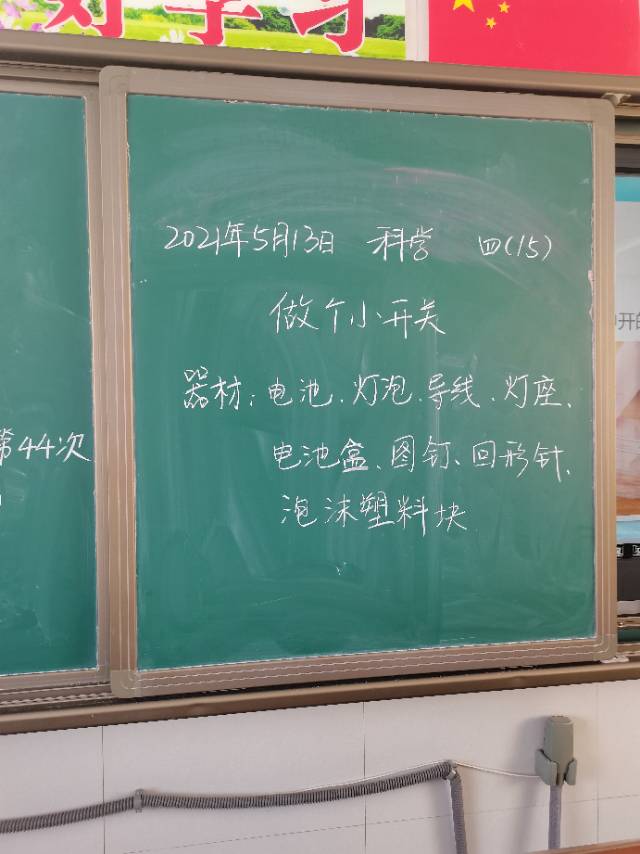 好学习
2021年5月13日 科学 四(15)
做个小开关
器材:电池、灯泡、导线、灯座、
电池盒、图钉、回形针、
泡沫塑料块
第44次
开的